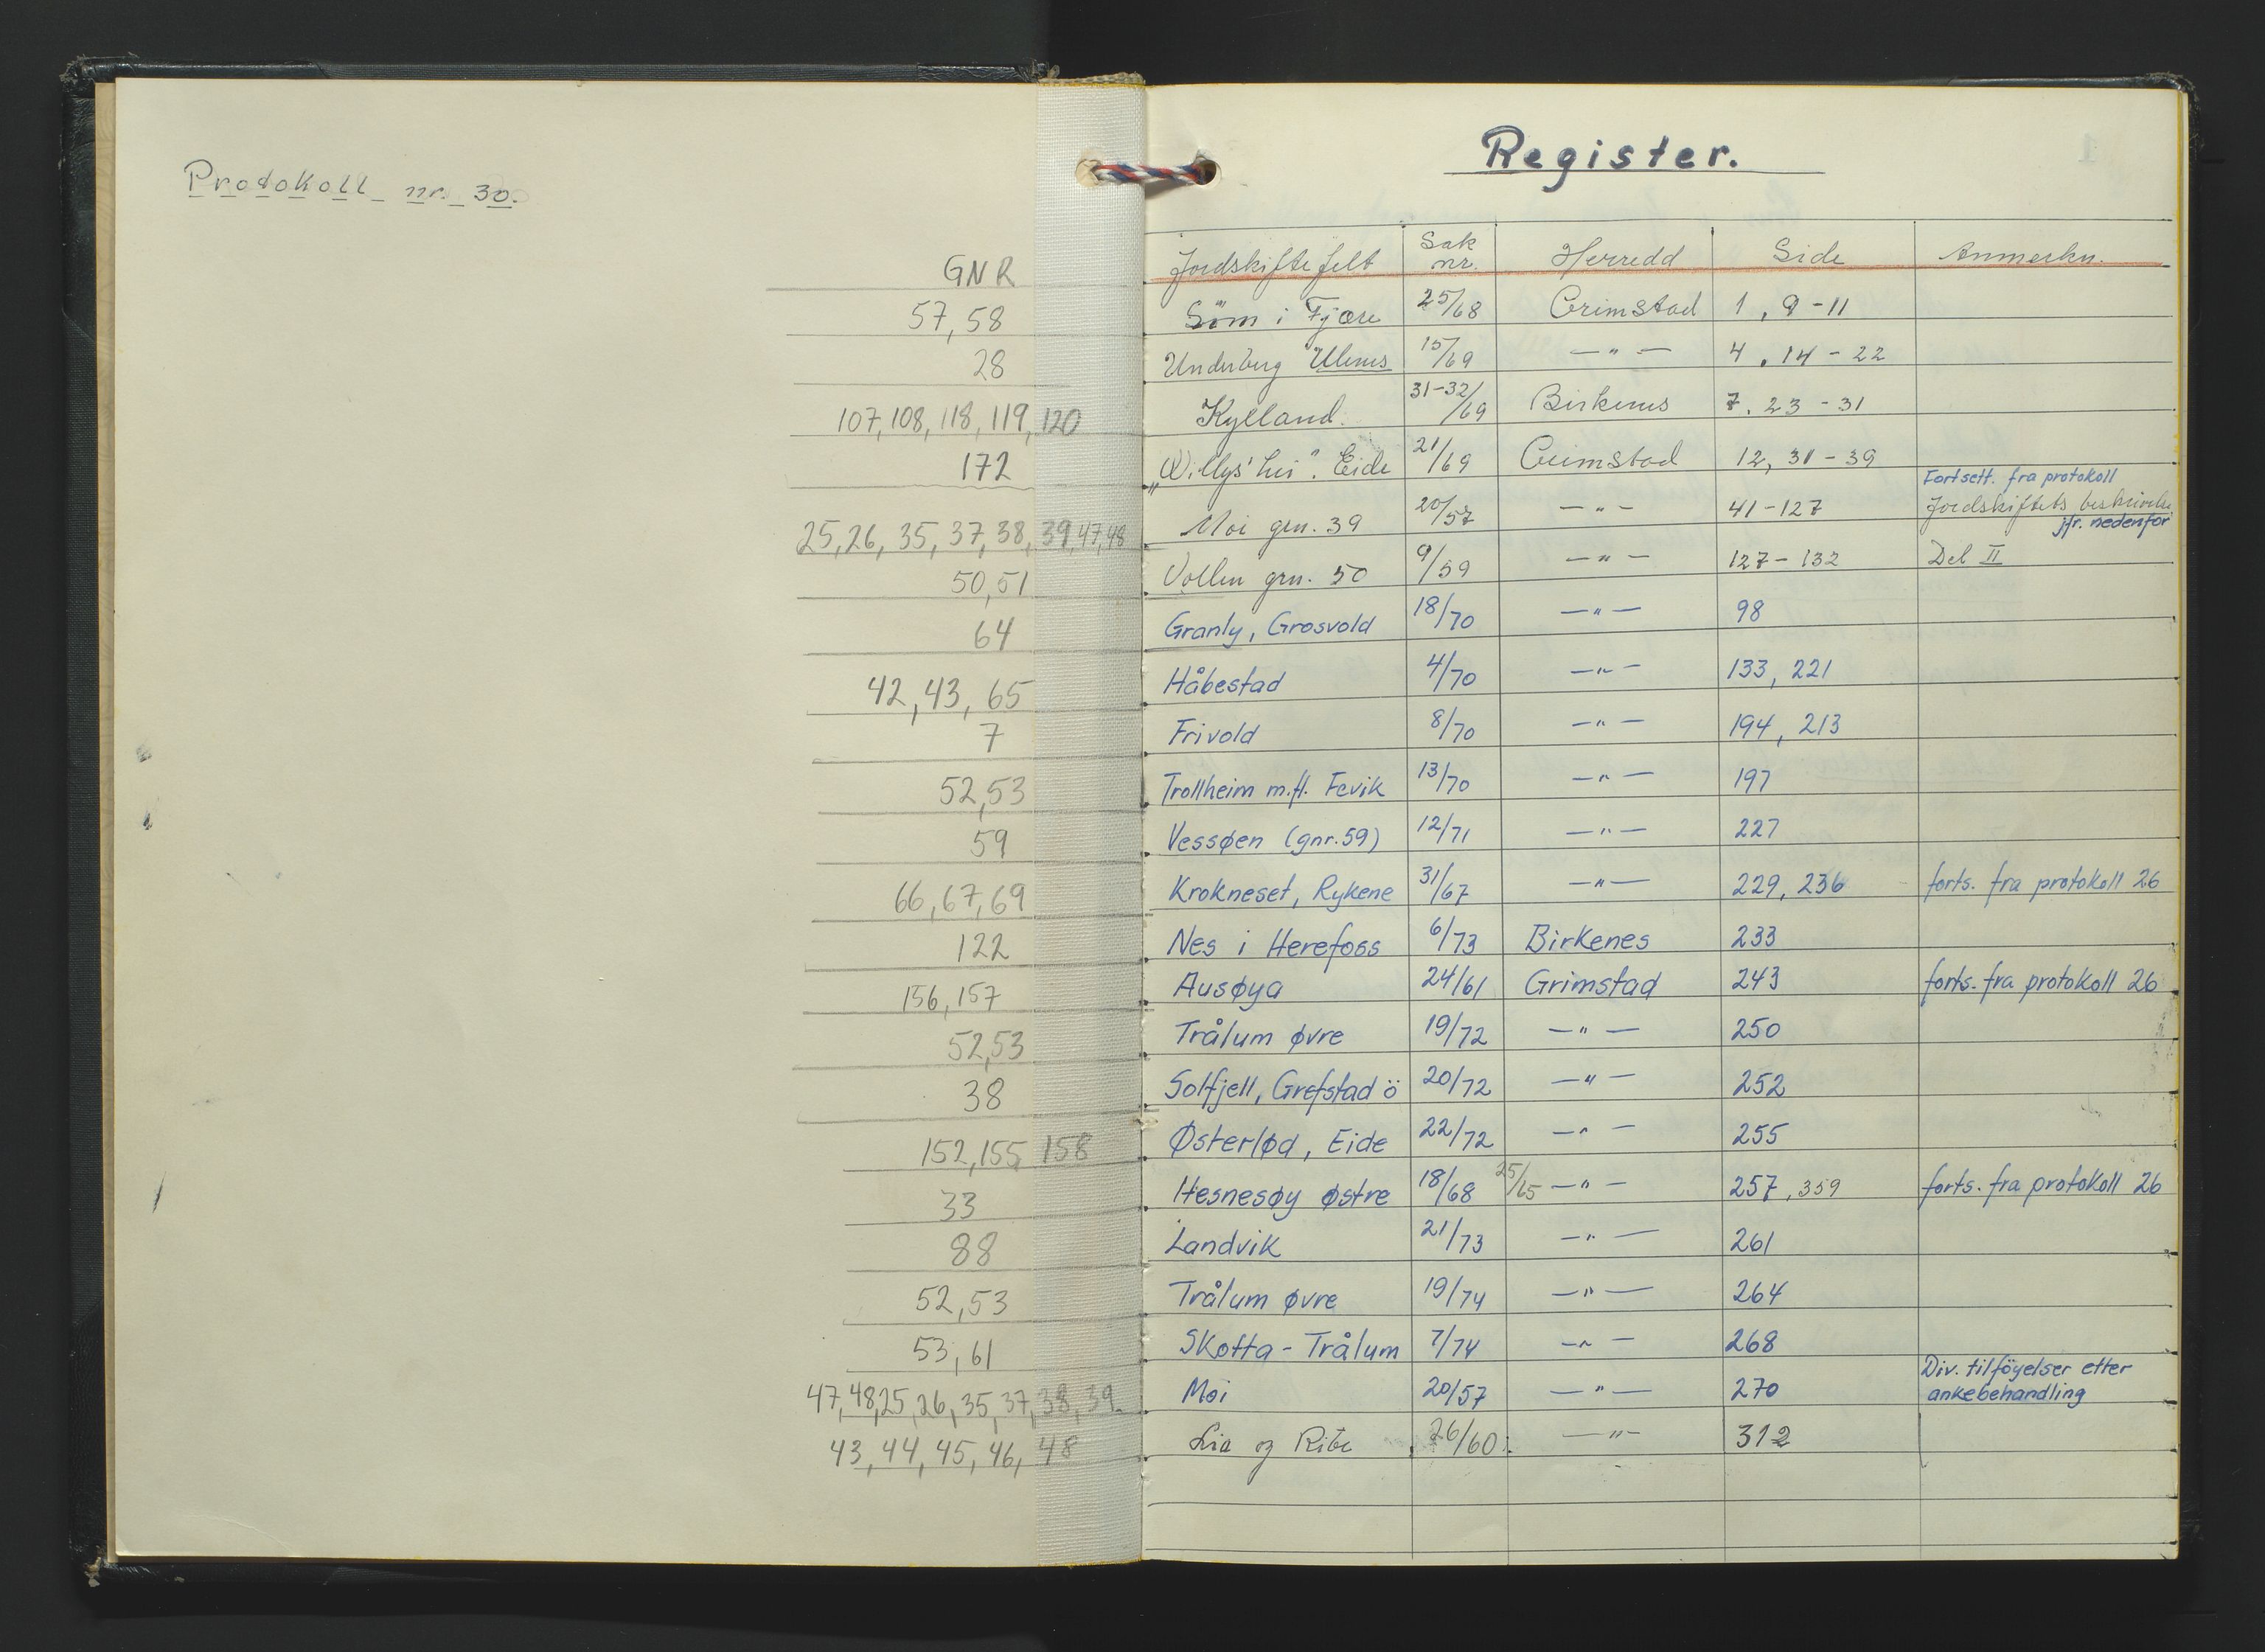 Protokoll nr. 30.
GNR
57, 58
28
107, 108, 118, 119, 120
172
25, 26, 35, 37, 38, 39, 47, 48
50, 51
64
42, 43, 65
7
52, 53
59
66, 67, 69
122
156, 157
52, 53
38
152, 155, 158
33
88
52, 53
53, 61
47, 48, 25, 26, 35, 37, 38, 39
43, 44, 45, 46, 48
Register.
Jordskiftefelt Sak nr. Herredd Side Anmerkn.
Søm i Fjære 25/68 Grimstad 1, 9-11
Underberg Ulenes 15/69 —"— 4, 14-22
Kylland. 31-32/69 Birkenes 7, 23-31
„Willys' hei". Eide 21/69 Grimstad 12, 31-39
Moi grn. 39 20/57 —"— 41-127 Fortsett. fra protokoll
Jordskiftets beskrivelse
jfr. nedenfor
Vollen grn. 50 9/59 —"— 127-132 Del II
Granly, Grosvold 18/70 —"— 98
Håbestad 4/70 —"— 133, 221
Frivold 8/70 —"— 194, 213
Trollheim m.fl. Fevik 13/70 —"— 197
Vessøen (gnr. 59) 12/71 —"— 227
Krokneset, Rykene 31/67 —"— 229, 236 forts. fra protokoll 26
Nes i Herefoss 6/73 Birkenes 233
Ausøya 24/61 Grimstad 243 forts. fra protokoll 26
Trålum øvre 19/72 —"— 250
Solfjell, Grefstad ö 20/72 —"— 252
Østerlød, Eide 22/72 —"— 255
Hesnesøy østre 18/68 25/65 —"— 257, 359 forts. fra protokoll 26
Landvik 21/73 —"— 261
Trålum øvre 19/74 —"— 264
Skotta - Trålum 7/74 —"— 268
Moi 20/57 —"— 270 Div. tilföyelser etter
ankebehandling
Lia og Ribe 26/60 —"— 312